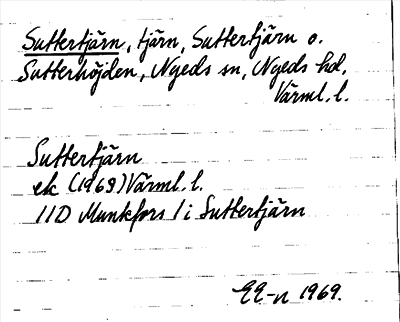 Suttertjärn, tjärn, Suttertjärn o.
Sutterhöjden, Nyeds sn, Nyeds hd,
Värml. l.
Suttertjärn
ek (1969) Värml. l.
11D Munkfors 1 i Suttertjärn
1969.